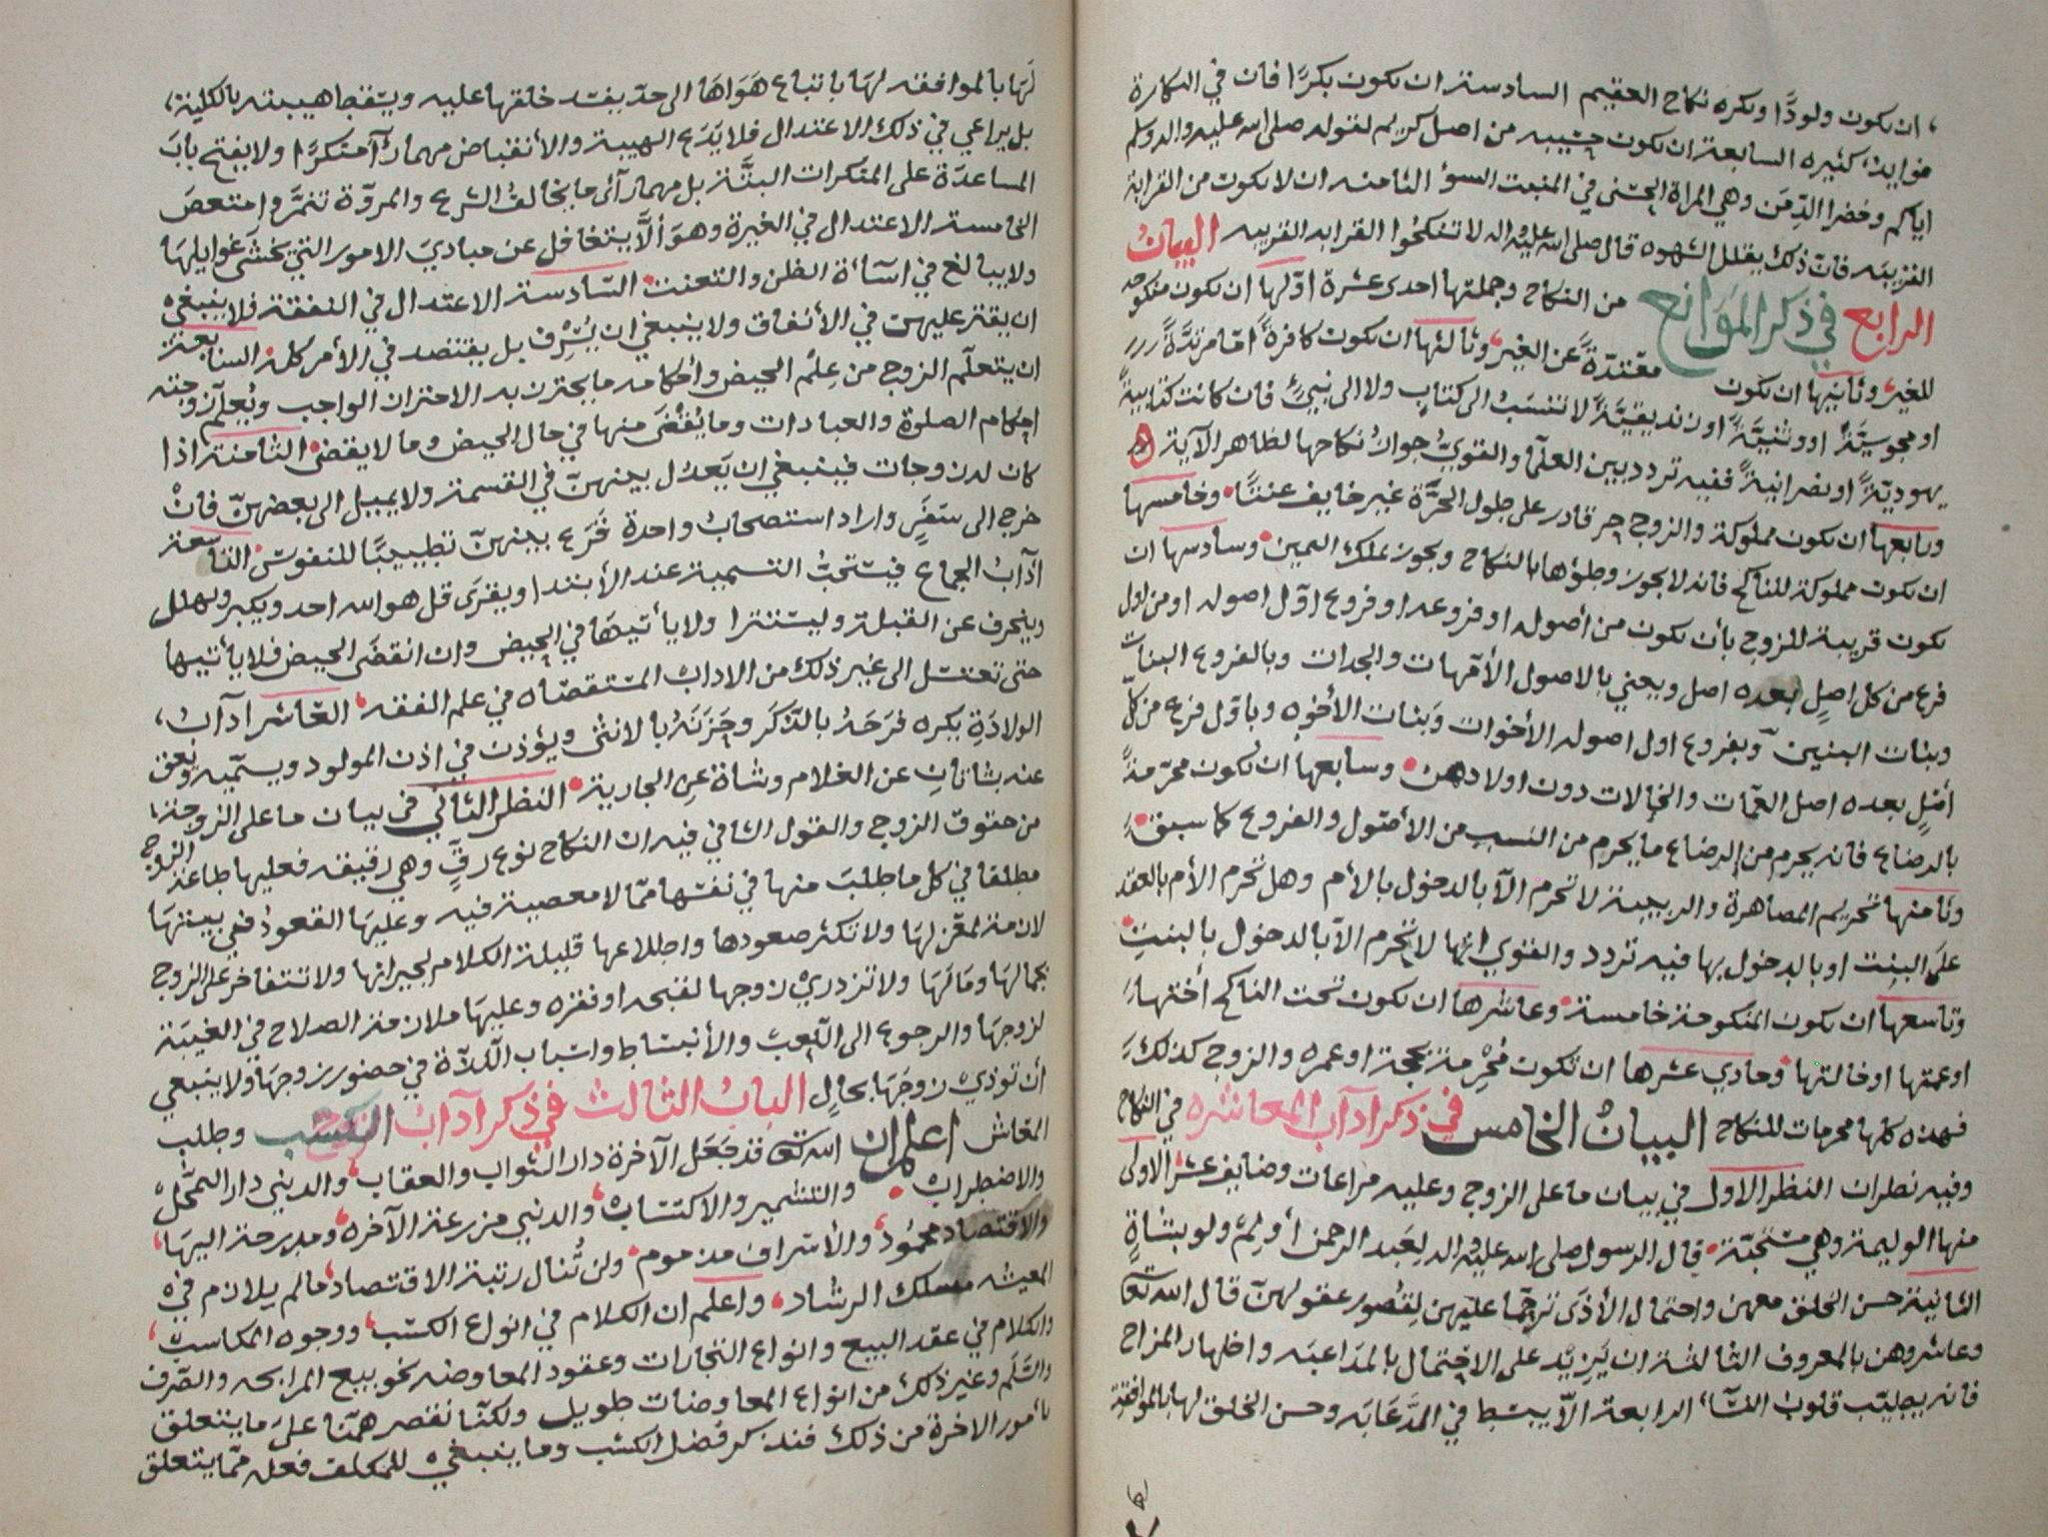 ان يكون ولودًا ويكره نكاح العقيم السادسة ان يكون بكرًا فان في البكارة
فوايد كثيره السابعة ان يكون حسيبه من اصل كريم لقوله صلى الله عليه واله وسلم
اياكم وخضرا الدِّمَن وهي المراة الحسنى في المنبت السوٴ الثامنه ان لا يكون من القرابة
القريبه فان ذلك يقلل الشهوه قال صلى الله عليه واله لا تنكحُوا القرابه القريبه البيان
الرابع في ذكر المَوَانع من النكاح وجملتها احدى عشرة اوّلها ان تكون منكوحه
للغير وثانيها ان يكون معتدّةً عن الغير وثالثها ان يكون كافرةً امّا مرتدَّةً
او مجوسيَّةً او وثنيَّةً او زنديقيَّةً لا تنتسَبُ الى كتابٍ ولا الى نبيٍّ فان كانت كتابيةً
يهوديّةً او نصرانيةً ففيه تردد بين العلمآ والقويُّ جوازُ نكاحها لظاهر الآية
ورابعها ان يكون مملوكة والزوج حر قادر على طول الحرَّة غير خايف عنتًا وخامسها
ان يكون مملوكة للناكح فانه لا يجوز وطؤها بالنكاح ويجوز بملك اليمين وسادسها ان
يكون قريبة للزوج بأن يكون من أصوله او فروعه او فروع اوّل اصوله او من اول
فرع من كل اصلٍ بعده اصل ويعني بالاصول الأمّهات والجدات وبالفروع البنات
وبنات البنين وبفروع اول اصوله الأخوات وبنات الأخوه وباوّل فرع من كلّ
أصلٍ بعده اصل العمّات والخالات دون اولادهن وسابعها ان يكون محرّمةً
بالرضاع فانه يحرم من الرضاع ما يحرم من النسب من الأصول والفروع كما سبق
وثامنها تحريم المصاهرة والربيبة لا تحرم الّا بالدخول بالأم وهل تحرم الأم بالعقد
على البنت او بالدخول بها فيه تردد والقوي انها لا تحرم الّا بالدخول بالبنت
وتاسعها ان يكون المنكوحة خامسة وعاشرها ان يكون تحت الناكح أختها
او عمتها او خالتها وحادي عشرها ان تكون مُحْرِمة بحجة او عمره والزوج كذلك
فهذه كلّها محرمات للنكاح البيانُ الخامس في ذكر ادآب المعاشره في النكاح
وفيه نظران النظر الاول في بيان ما على الزوج وعليه مراعات وضايف عشر الاولى
منها الوليمة وهي مستحبّة قال الرسول صلى الله عليه واله لعَبد الرحمن أولم ولو بشاةٍ
الثانية حسن الخلق معهن واحتمال الأذى ترحّما عليهن لِقُصور عقولهنّ قال الله تعالى
وعاشروهن بالمعروف الثالثة ان يَزيد على الاحتمال بالمدَاعبَه واظهار المزاح
فانه يطيّب قلوب النسآء الرابعة الّا يبسَط في المدَّعَابَه وحسن الخلق لها بالموافقة
لَهَا بالموافقه لهَا باتباع هَوَاهَا الى حدّ يفسد خلقها عليه ويسْقط هيبته بالكلية
بل يراعي في ذلك الاعتدال فلا يَدَع الهيبة والأنقباض مهما رأ آمنكرًا ولا يفتح بابَ
المساعدَة على المنكرات البتَّة بل مهما رآى ما يخالف الشرع والمروّة تنمَّر وامتعض
الخامسة الاعتدال في الغيرة وهوَ ألاَّ يتغافل عن مبادي الامور التي يخشَى غوايلهَا
ولا يبالغ في اسآءة الظن والتعنت السّادسة الاعتدال في النفقة فلا ينبغي
ان يقتر عليهن في الأنفاق ولا ينبغي ان يُسْرِف بل يقتصد في الأمر كله السابعة
ان يتعلّم الزوج من عِلم الحيض وأحكامه ما يحترز به الاحتراز الواجب ويُعلّم زوجته
احكام الصلوة والعبادات وما يُقْضَى منها في حال الحيض وما لا يقضى الثامنة اذا
كان له زوجات فينبغي ان يَعدل بينهنّ في القسمة ولا يميل الى بعضهنّ فانْ
خرج الى سَفرٍ واراد استصحابَ واحدةٍ قَرَع بينهنّ تطييبًا للنفوس التاسعة
آدآبُ الجماع فيسْتحبُّ التسمية عند الأبتدا ويقرَى قل هو الله احد ويكبر ويهلل
وينحرف عن القبلة وليسْتترا ولا يأتيهَا في الحيض وان انقضَى الحيض فلا يأتيها
حتى تغتسَل الى غير ذلك من الاداب المسْتقصَاه في علم الفقه العَاشر ادآبُ
الولادَةِ يكره فرَحَهُ بالذَّكَر وحَزَنَهُ بالانثى ويؤذن في اذن المولود ويسمّيه ويعق
عنه بشاتان عن الغلام وشاة عن الجارية النظر الثاني في بيان ما على الزوجة
من حقوق الزوج والقول الشافي فيه ان النكاح نوع رقٍّ وهي رقيقه فعليها طاعة الزوج
مطلقا في كل ما طلبَ منها في نفسها ممّا لا معصية فيه وعليهَا القعود في بيتهَا
لازمة لمغزلهَا ولا تكثر صعودها واطلاعها قليلة الكلام لجيرانها ولا تتفاخر على الزوج
بجمالهَا ومَالهَا ولا تزدري زوجها لقبحه او فقره وعليهَا ملازمة الصلاح في الغيبَة
لزوجهَا والرجوع الى اللّعِب والأنبسَاط واسْباب اللّذّة في حضور زوجهَا ولا ينبغي
أن توذي زوجَهَا بحالٍ البابُ الثالث في ذكر ادآب الكسْب وطلب
المعَاش اعلم ان الله تعالى قد جَعَل الآخرة دار الثواب والعقاب والدنيى دار التمحّل
والاضطراب والتشمير والاكتسَاب والدنيى مزرعة الآخره ومدرجة اليهَا
والاقتصاد محمُودٌ والأسْراف مذموم ولن تُنال رتبة الاقتصاد ما لم يلازم في
المعيشه مسلك الرشاد واعلم ان الكلام في انواع الكسْب ووجوه المكاسب
والكلام في عقد البيع وانواع التجارات وعقود المعاوضه نحو بيع المرابحه والصَّرف
والسَّلَم وغير ذلك من انواع المعاوضات طويل ولكنّا نقصر همّنا على ما يتعلق
بأمور الاخرة من ذلك فنذكر فضل الكسْب وما ينبغي للمكلف فعله ممّا يتعلق